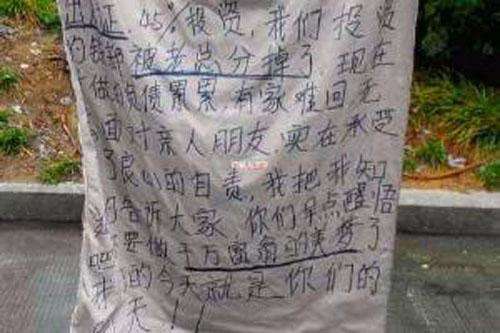 出证，45%投资，我们投资
的钱都被老总分掉了，现在
做负债累累，有家难回无
面对亲人朋友，实在承受
了良心的自责，我把我知
告诉大家，你们早点醒悟
吧，要做千万富翁的美梦了
的今天就是你们的
天！！